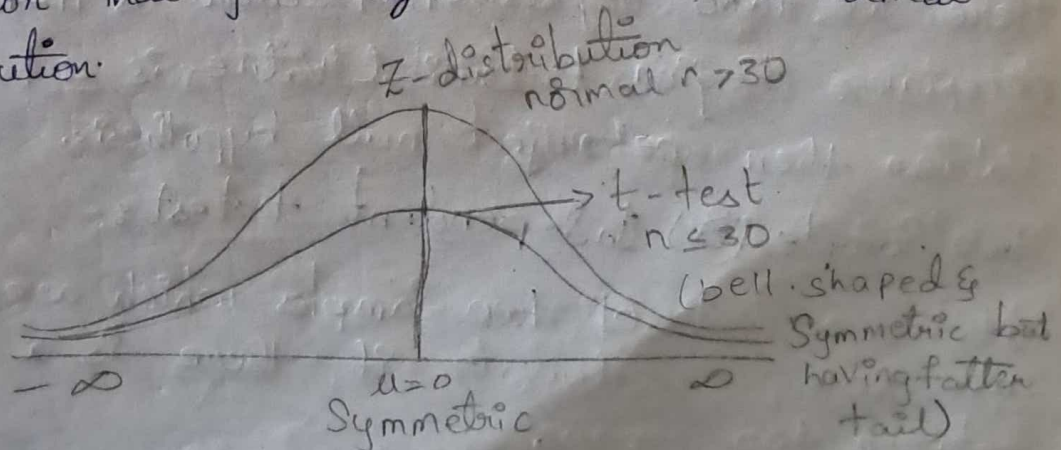 ution.
Z-distribution
normal n >30
t-test
n ≤ 30
(bell.shaped &
Symmetric but
having fatter
tail)
- ∞
μ=0
∞
Symmetric